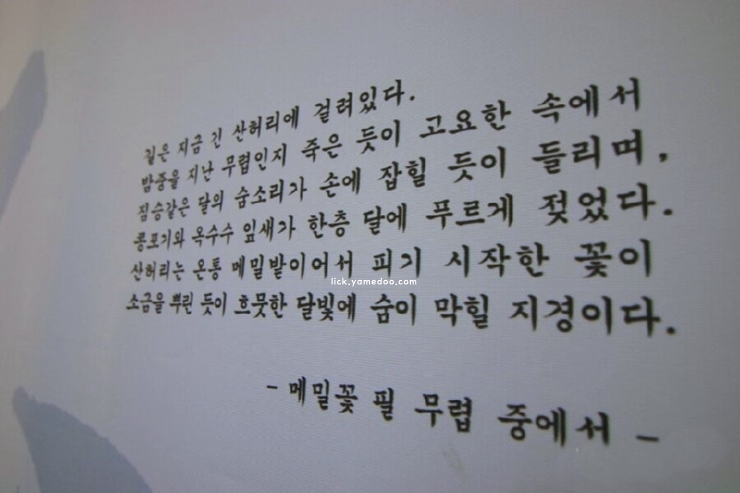 길은 지금 긴 산허리에 걸려있다.
밤중을 지난 무렵인지 죽은 듯이 고요한 속에서
짐승같은 달의 숨소리가 손에 잡힐 듯이 들리며,
콩포기와 옥수수 잎새가 한층 달에 푸르게 젖었다.
산허리는 온통 메밀밭이어서 피기 시작한 꽃이
lick.yamedoo.com
소금을 뿌린 듯이 흐뭇한 달빛에 숨이 막힐 지경이다.
- 메밀꽃 필 무렵 중에서 -